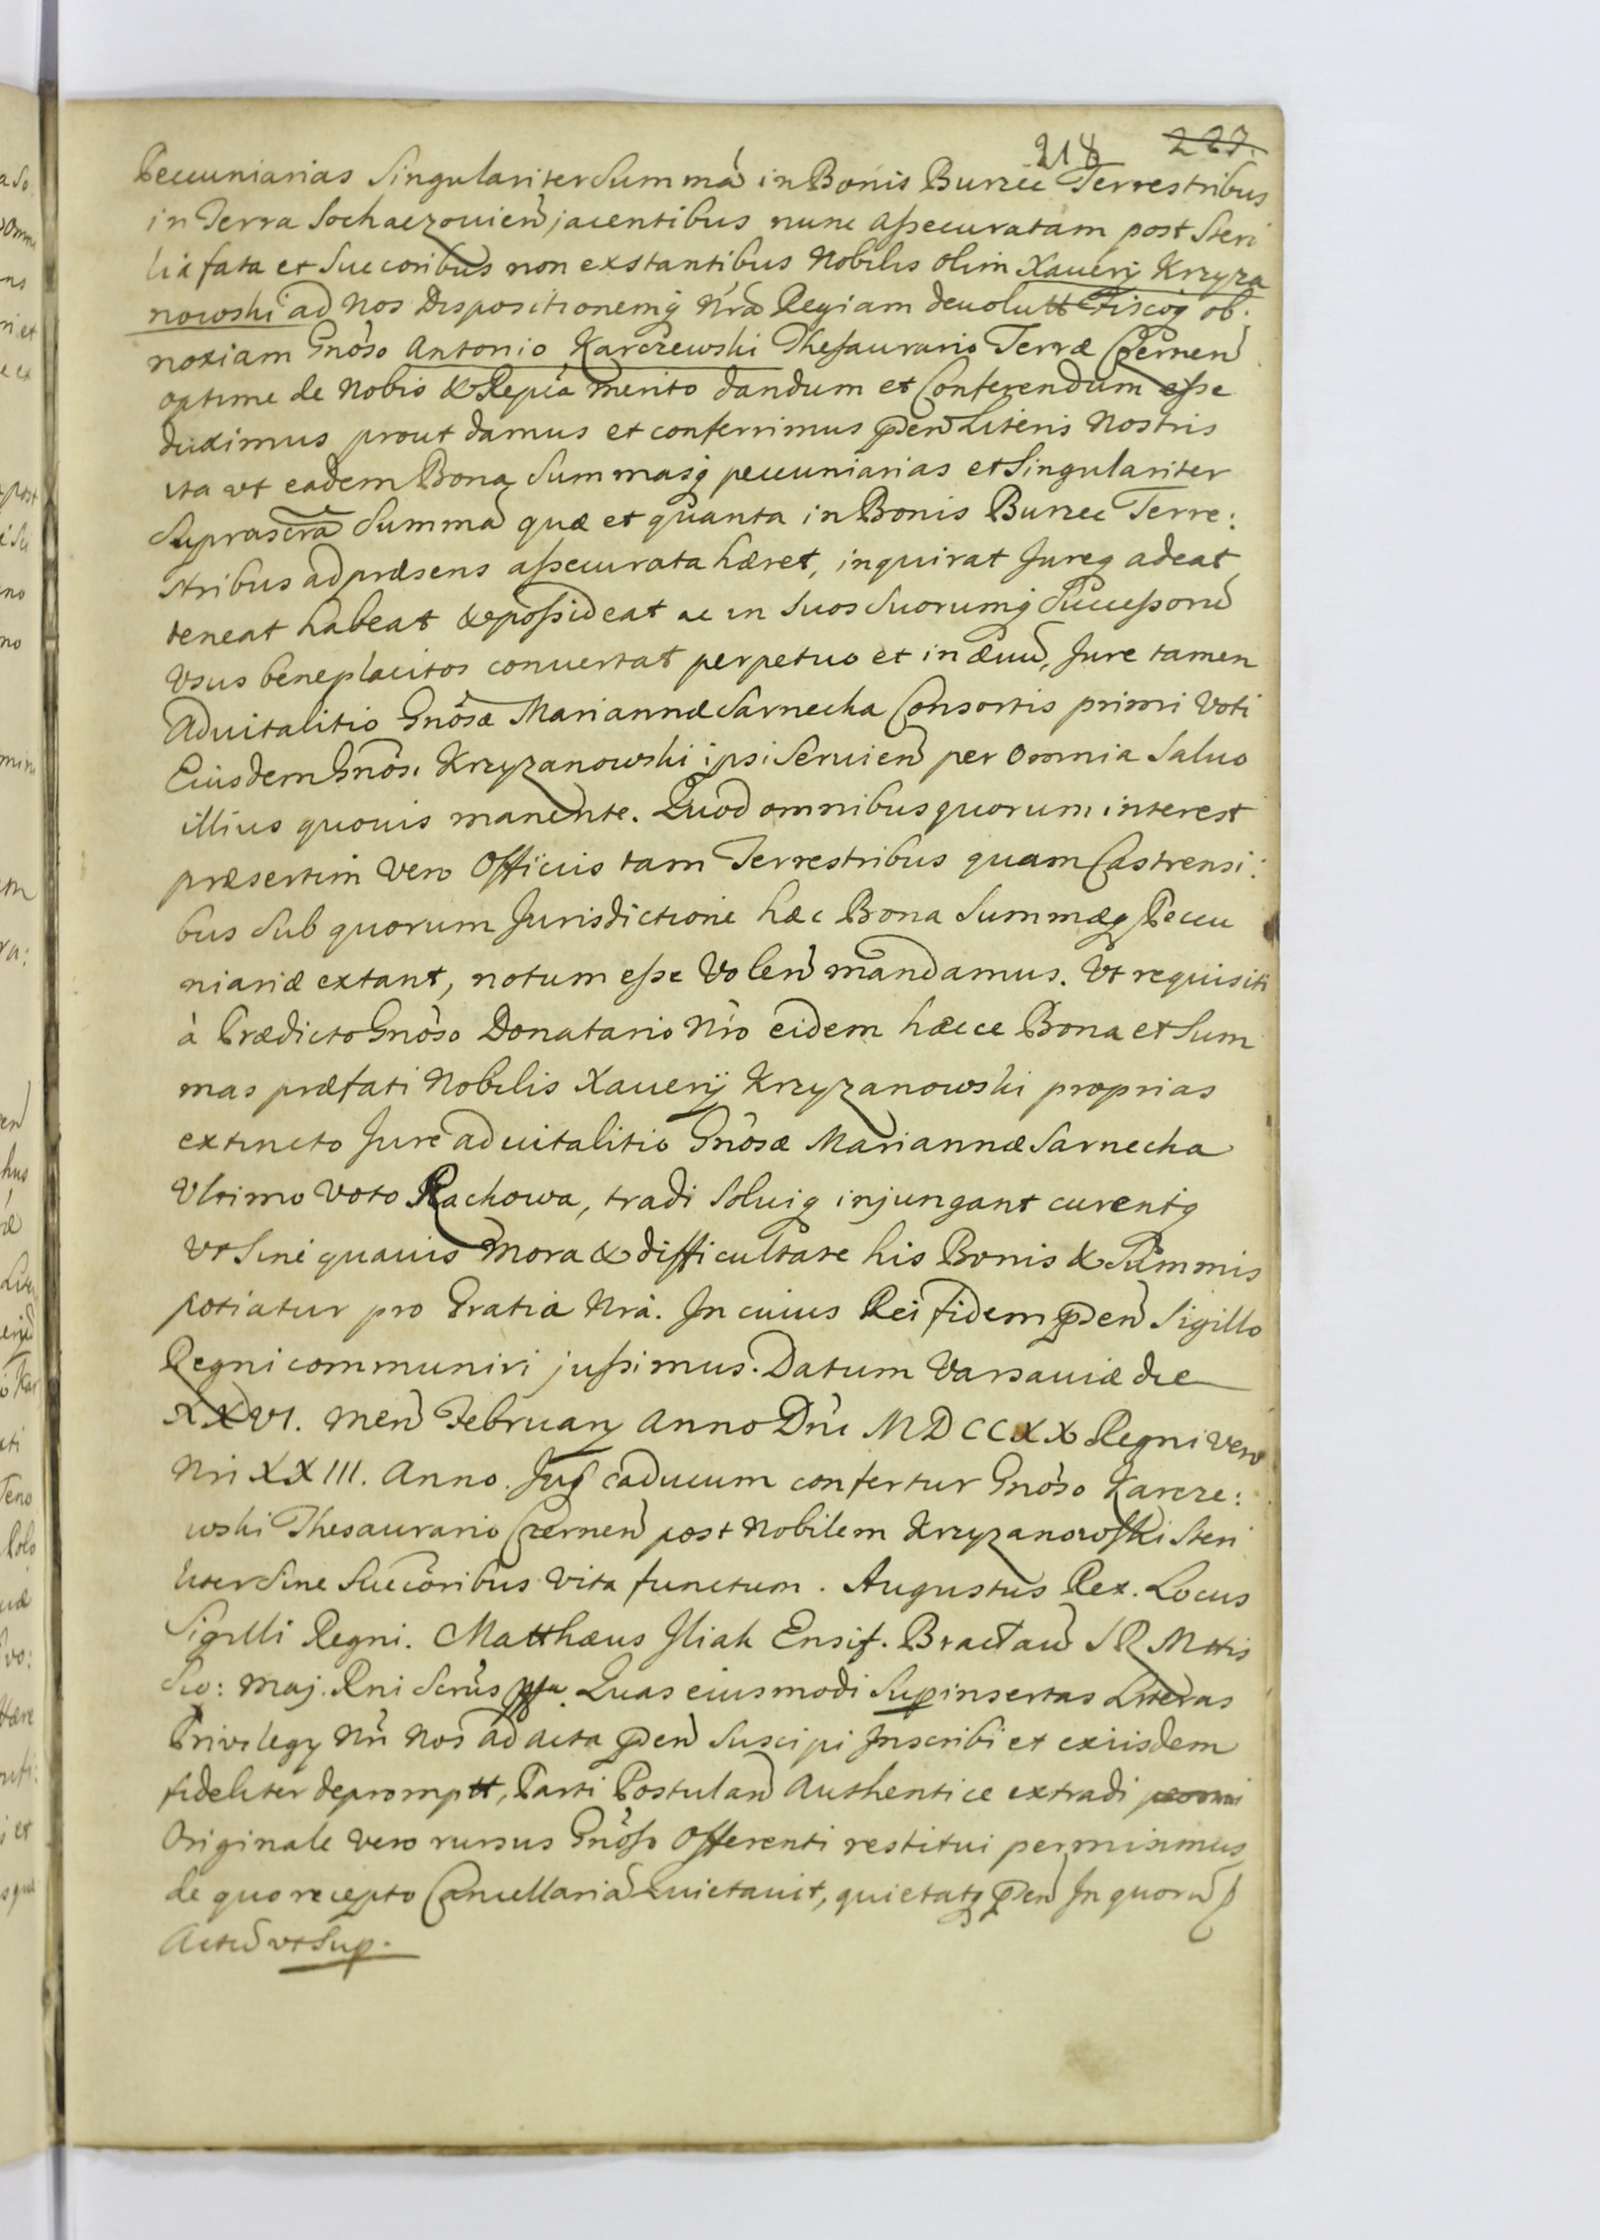 218 227.
Pecuniarias Singulariter Summã in Bonis Burzec Terrestribus
in Terra Sochaczouieñ jacentibus nunc assecuratam post Steri
lia fata et Succoribus non exstantibus Nobilis olim Xauerÿ Krzyza
nowski ad Nos Dispositionemq Nrã Regiam deuolutt Fiscoq ob:
noxiam Gnõso Antonio Karczewski Thesaurario Terræ Czerneñ
optime de Nobis & Repca merito dandum et Conferendum esse
duximus prout damus et conferimus pñ Literis Nostris
ita vt eadem Bona Summasq pecuniarias et Singulariter
Suprascrã Summã quæ et quanta in Bonis Burzec Terre:
stribus ad præsens assecurata hæret, inquirat Jureq adeat
teneat habeat & possideat ac in Suos Suorumq Successorũ
Vsus beneplacitos conuertat perpetuo et in æuũ, Jure tamen
Aduitalitio Gnõsæ Mariannæ Sarnecka Consortis primi Voti
Eiusdem Gnõsi Krzyzanowski ipsi Seruieñ per omnia Saluo
illius quouis manente. Quod omnibus quorum interest
præsertim vero Officijs tam Terrestribus quam Castrensi:
bus Sub quorum Jurisdictione hæc Bona Summæq Pecu
niariæ extant, notum esse Voleñ mandamus. Vt requisiti
à Prædicto Gnõso Donatario Nro eidem hæcce Bona et Sum
mas præfati Nobilis Xauerÿ Krzyzanowski proprias
extincto Jure aduitalitio Gnõsæ Mariannæ Sarnecka
Vltimo voto Rackowa, tradi Soluiq injungant curentq
vt Sine quauis Mora & difficultate his Bonis & Summis
potiatur pro Gratia Nrã. In cuius Rei fidem pñ Sigillo
Regni communiri jussimus. Datum Varsauiæ die
XXVI. Meñ Februarÿ Anno Dñi MDCCXX Regni vero
Nri XXIII. Anno. Jus caducum confertur Gnõso Karcze:
wski Thesaurario Czerneñ post Nobilem Krzyzanowski Steri
liter Sine Succoribus vita functum. Augustus Rex. Locus
Sigilli Regni. Matthæus Iliak Ensif. Bractaũ S R Mttis
Maj. Rni Quas eiusmodi Sup insertas Literas
Privilegÿ Nri Nos ad acta pñ Suscipi Inscribi et exiisdem
fideliter depromptt, Parti Postulañ Authentice extradi
Originale vero rursus Gnõso Offerenti restitui permisimus
de quo recepto Cancellariã Quietauit, quietatq pñ In quorũ
Actũ vt Sup.